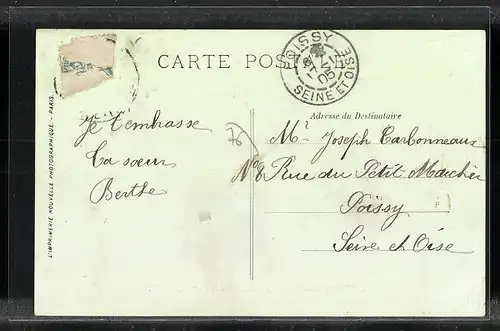 CARTE POS
POISSY
SEINE ET OISE
Adresse du Destinataire
Je t'embrasse
Ta sœur
Berthe
78
Mr Joseph Carbonneaux
No 8 Rue du Petit-Marché
Poissy
Seine et Oise
L'IMPRIMERIE NOUVELLE PHOTOGRAPHIQUE - PARIS